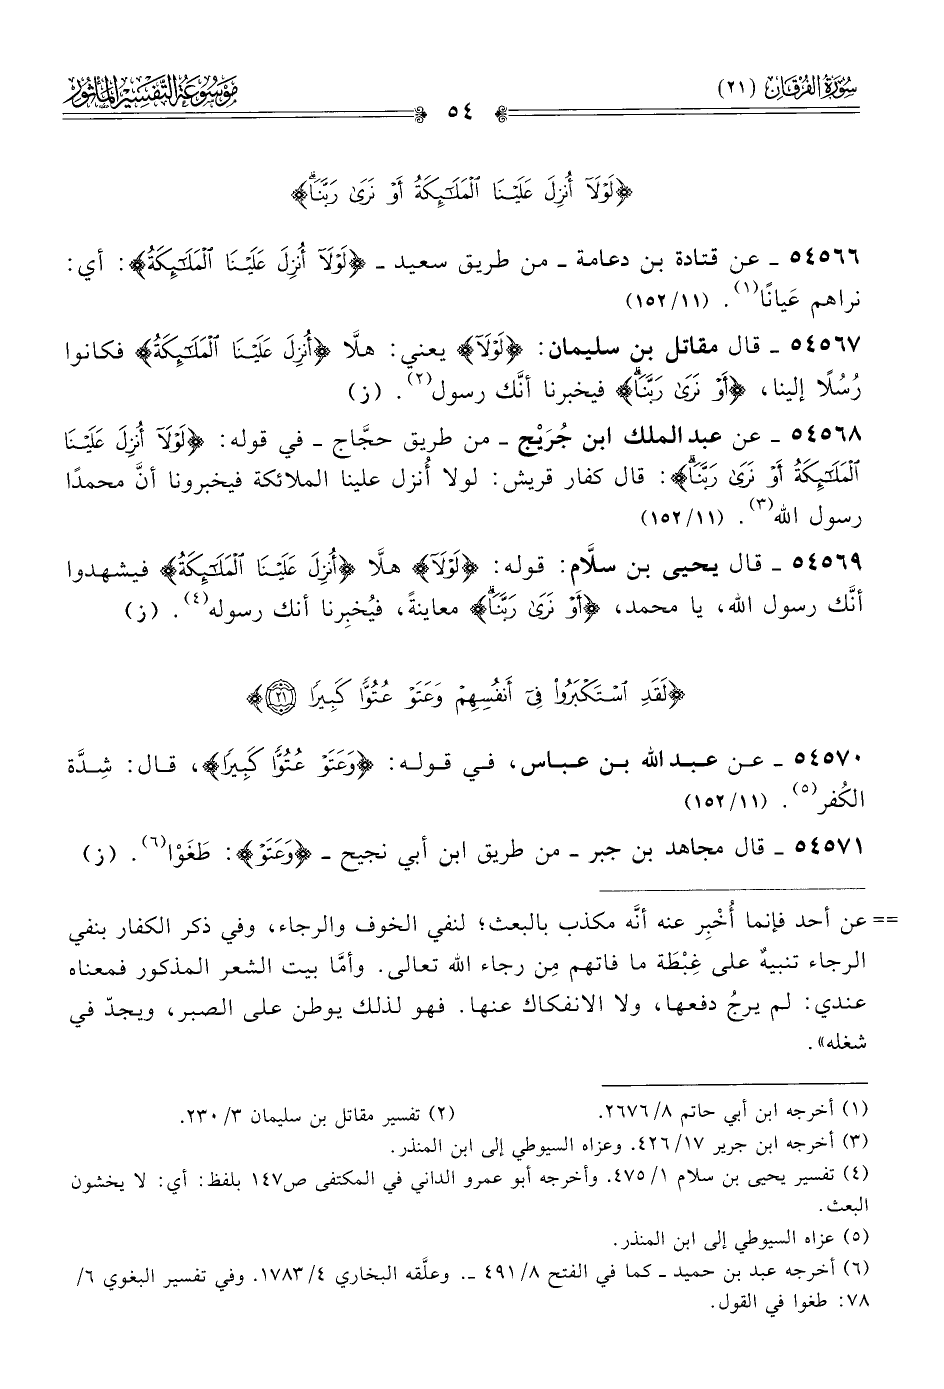 سُورَةُ الفُرْقَان (٢١)
مَوْسُوعَةُ التَّفْسِيرِ المَأْثُور
٥٤
﴿لَوْلَآ أُنزِلَ عَلَيْنَا ٱلْمَلَـٰٓئِكَةُ أَوْ نَرَىٰ رَبَّنَاۗ﴾
٥٤٥٦٦ ـ عن قتادة بن دعامة ـ من طريق سعيد ـ ﴿لَوْلَآ أُنزِلَ عَلَيْنَا ٱلْمَلَـٰٓئِكَةُ﴾: أي:
نراهم عَيانًا(١). (١٥٢/١١)
٥٤٥٦٧ ـ قال مقاتل بن سليمان: ﴿لَوْلَآ﴾ يعني: هلَّا ﴿أُنزِلَ عَلَيْنَا ٱلْمَلَـٰٓئِكَةُ﴾ فكانوا
رُسُلًا إلينا، ﴿أَوْ نَرَىٰ رَبَّنَاۗ﴾ فيخبرنا أنَّك رسول(٢). (ز)
٥٤٥٦٨ ـ عن عبد الملك ابن جُرَيْج ـ من طريق حجَّاج ـ في قوله: ﴿لَوْلَآ أُنزِلَ عَلَيْنَا
ٱلْمَلَـٰٓئِكَةُ أَوْ نَرَىٰ رَبَّنَاۗ﴾: قال كفار قريش: لولا أُنزل علينا الملائكة فيخبرونا أنَّ محمدًا
رسول الله(٣). (١٥٢/١١)
٥٤٥٦٩ ـ قال يحيى بن سلَّام: قوله: ﴿لَوْلَآ﴾ هلَّا ﴿أُنزِلَ عَلَيْنَا ٱلْمَلَـٰٓئِكَةُ﴾ فيشهدوا
أنَّك رسول الله، يا محمد، ﴿أَوْ نَرَىٰ رَبَّنَاۗ﴾ معاينةً، فيُخبِرنا أنك رسوله(٤). (ز)
﴿لَقَدِ ٱسْتَكْبَرُوا۟ فِىٓ أَنفُسِهِمْ وَعَتَوْ عُتُوًّا كَبِيرًا ٢١﴾
٥٤٥٧٠ ـ عـن عـبـد الله بـن عـبـاس، فـي قـولـه: ﴿وَعَتَوْ عُتُوًّا كَبِيرًا﴾، قـال: شِـدَّة
الكُفر(٥). (١٥٢/١١)
٥٤٥٧١ ـ قال مجاهد بن جبر ـ من طريق ابن أبي نجيح ـ ﴿وَعَتَوْ﴾: طَغَوْا(٦). (ز)
== عن أحد فإنما أُخْبِر عنه أنَّه مكذب بالبعث؛ لنفي الخوف والرجاء، وفي ذكر الكفار بنفي
الرجاء تنبيهٌ على غِبْطَة ما فاتهم مِن رجاء الله تعالى. وأمَّا بيت الشعر المذكور فمعناه
عندي: لم يرجُ دفعها، ولا الانفكاك عنها. فهو لذلك يوطن على الصبر، ويجدّ في
شغله».
(١) أخرجه ابن أبي حاتم ٨/ ٢٦٧٦.
(٢) تفسير مقاتل بن سليمان ٣/ ٢٣٠.
(٣) أخرجه ابن جرير ١٧/ ٤٢٦. وعزاه السيوطي إلى ابن المنذر.
(٤) تفسير يحيى بن سلام ١/ ٤٧٥. وأخرجه أبو عمرو الداني في المكتفى ص١٤٧ بلفظ: أي: لا يخشون
البعث.
(٥) عزاه السيوطي إلى ابن المنذر.
(٦) أخرجه عبد بن حميد ـ كما في الفتح ٨/ ٤٩١ ـ. وعلَّقه البخاري ٤/ ١٧٨٣. وفي تفسير البغوي ٦/
٧٨: طغوا في القول.